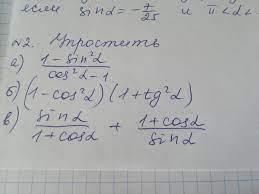 если sin α = -7/25 и π < α <
№2. Упростить
а) (1 - sin²α)/(cos²α - 1)
б) (1 - cos²α)(1 + tg²α)
в) sin α/(1 + cos α) + (1 + cos α)/sin α